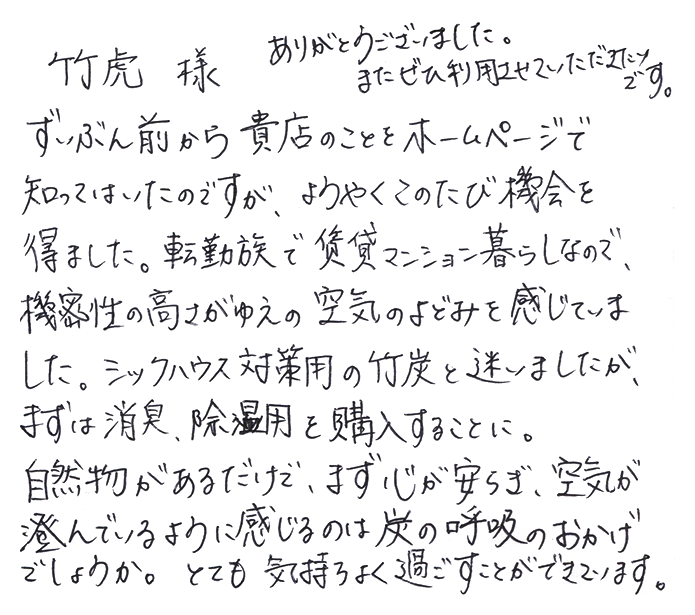 竹虎 様
ありがとうございました。
またぜひ利用させていただきたい
です。
ずいぶん前から貴店のことをホームページで
知ってはいたのですが、ようやくこのたび機会を
得ました。転勤族で賃貸マンション暮らしなので、
機密性の高さがゆえの空気のよどみを感じていま
した。シックハウス対策用の竹炭と迷いましたが、
まずは消臭、除湿用を購入することに。
自然物があるだけで、まず心が安らぎ、空気が
澄んでいるように感じるのは炭の呼吸のおかげ
でしょうか。とても気持ちよく過ごすことができています。